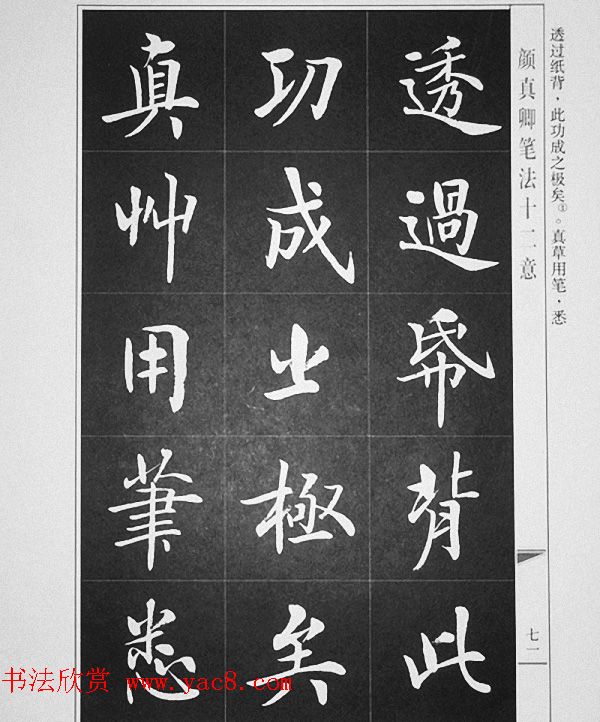 透过纸背，此功成之极矣①。真草用笔，悉
颜真卿笔法十二意
七一
透過帋背此
功成㞢極矣
真艸用筆悉
书法欣赏 www.yac8.com